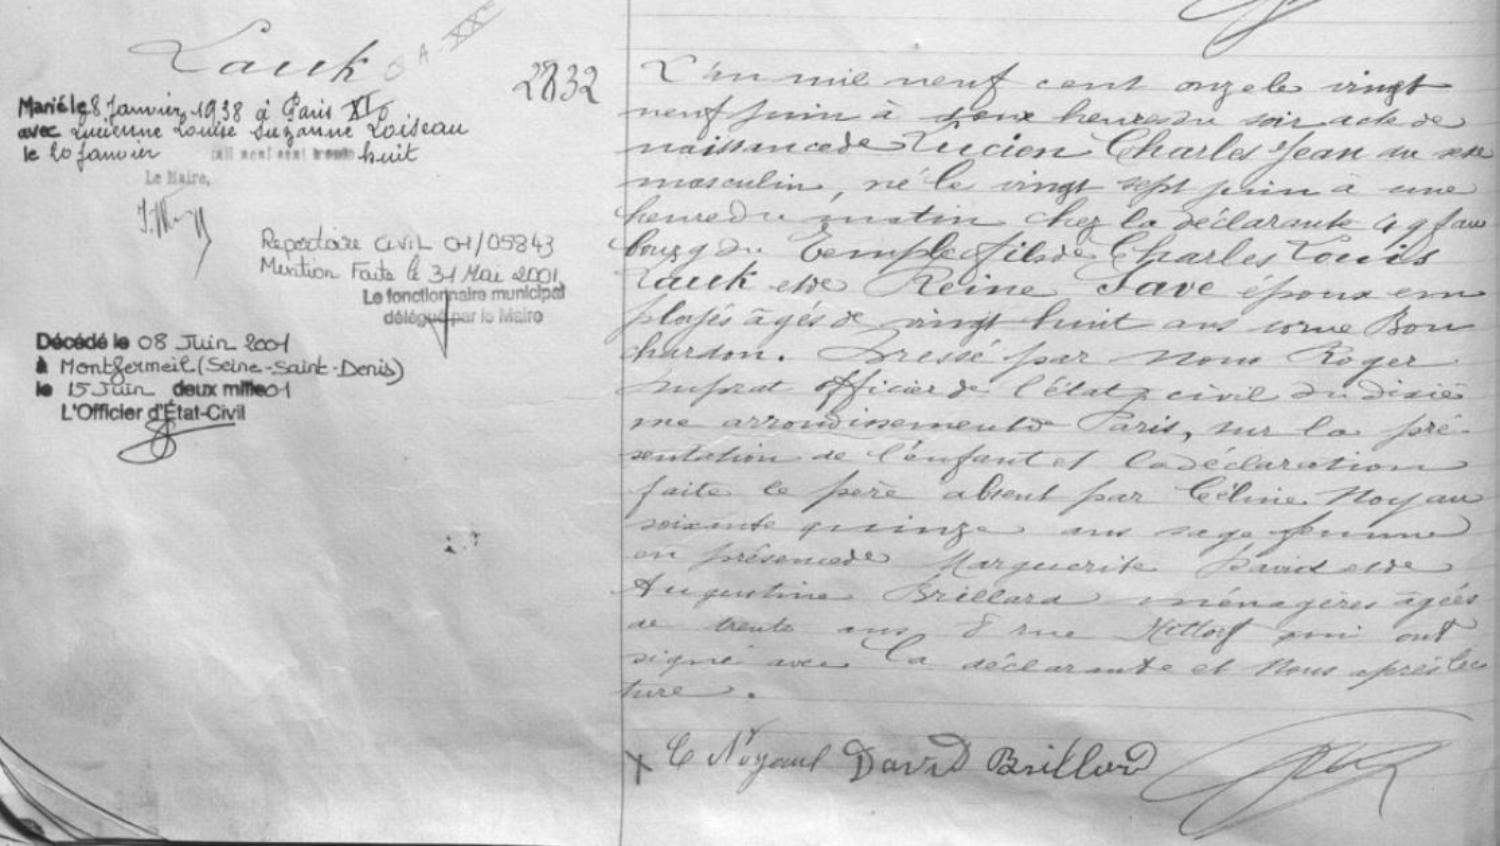 Lauk
2832
Marié le 8 Janvier 1938 à Paris XIe
avec Lucienne Louise Suzanne Loiseau
le 20 Janvier mil neuf cent trente huit
Le Maire,
Repertoire Civil 01/05843
Mention Faite le 31 Mai 2001
Le fonctionnaire municipal
délégué par le Maire
Décédé le 08 Juin 2001
à Montfermeil (Seine-Saint-Denis)
le 15 Juin deux mille 01
L'Officier d'État-Civil
L'an mil neuf cent onze le vingt
neuf juin à deux heures du soir acte de
naissance de Lucien Charles Jean du sexe
masculin, né le vingt sept juin à une
heure du matin chez la déclarante 49 fau
bourg du Temple fils de Charles Louis
Lauk et de Reine Save époux em
ployés âgés de vingt huit ans rue Bou
chardon. Dressé par Nous Roger
officier de l'état civil du dixiè
me arrondissement de Paris, sur la pré-
sentation de l'enfant et la déclaration
faite le père absent par Céline Noyau
soixante quinze ans sage femme
en présence de Marguerite David et de
Augustine Brillard ménagères âgées
de trente ans 8 rue Hittorf qui ont
signé avec la déclarante et Nous après lec
ture.
C Noyaul David Brillard